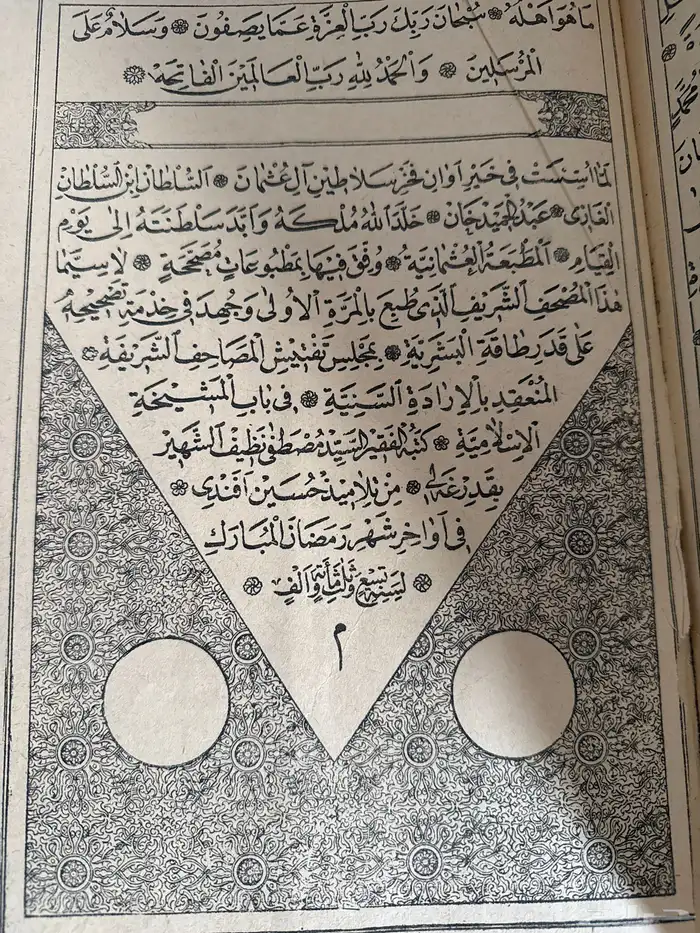 مَا هُوَ اَهْلُهُ ❁ سُبْحَانَ رَبِّكَ رَبِّ الْعِزَّةِ عَمَّا يَصِفُونَ ❁ وَسَلَامٌ عَلَى
الْمُرْسَلِينَ ❁ وَالْحَمْدُ لِلّٰهِ رَبِّ الْعَالَمِينَ الْفَاتِحَهْ ❁
لَمَّا اُسِّسَتْ فِي خَيْرِ اَوَانِ فَخْرِ سَلَاطِينِ اٰلِ عُثْمَانَ ❁ اَلسُّلْطَانِ ابْنِ السُّلْطَانِ
الْغَازِي ❁ عَبْدُ الْحَمِيدْ خَانْ ❁ خَلَّدَ اللّٰهُ مُلْكَهُ وَاَبَّدَ سَلْطَنَتَهُ اِلٰى يَوْمِ
الْقِيَامِ ❁ اَلْمَطْبَعَةُ الْعُثْمَانِيَّةُ ❁ وُفِّقَ فِيهَا بِمَطْبُوعَاتٍ مُصَحَّحَةٍ ❁ لَا سِيَّمَا
هٰذَا الْمُصْحَفِ الشَّرِيفِ الَّذِي طُبِعَ بِالْمَرَّةِ الْاُولٰى وَجُهِدَ فِي خِدْمَةِ تَصْحِيحِهِ
عَلٰى قَدَرِ طَاقَةِ الْبَشَرِيَّةِ ❁ بِمَجْلِسِ تَفْتِيشِ الْمَصَاحِفِ الشَّرِيفَةِ ❁
الْمُنْعَقِدِ بِالْاِرَادَةِ السَّنِيَّةِ ❁ فِي بَابِ الْمَشِيخَةِ
الْاِسْلَامِيَّةِ ❁ كَتَبَهُ الْفَقِيرُ السَّيِّدُ مُصْطَفٰى نَظِيفُ الشَّهِيرُ
بِقَدِرْغَهْ لِي ❁ مِنْ تَلَامِيذِ حُسَيْنْ اَفَنْدِي ❁
فِي اَوَاخِرِ شَهْرِ رَمَضَانَ الْمُبَارَكِ
❁ لِسَنَةِ تِسْعٍ وَثَلٰثِمِائَةٍ وَاَلْفٍ ❁
م